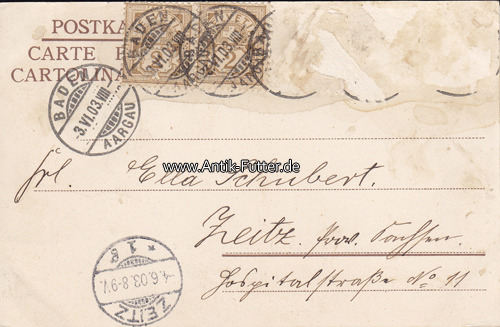 POSTKA
CARTE P
CARTOLINA
BADEN
3.VI.03.VIII
AARGAU
www.Antik-Futter.de
Frl. Ella Schubert.
Zeitz. Prov. Sachsen.
Hospitalstraße No 11
ZEITZ
4.6.03.8-9V.
* 1 g